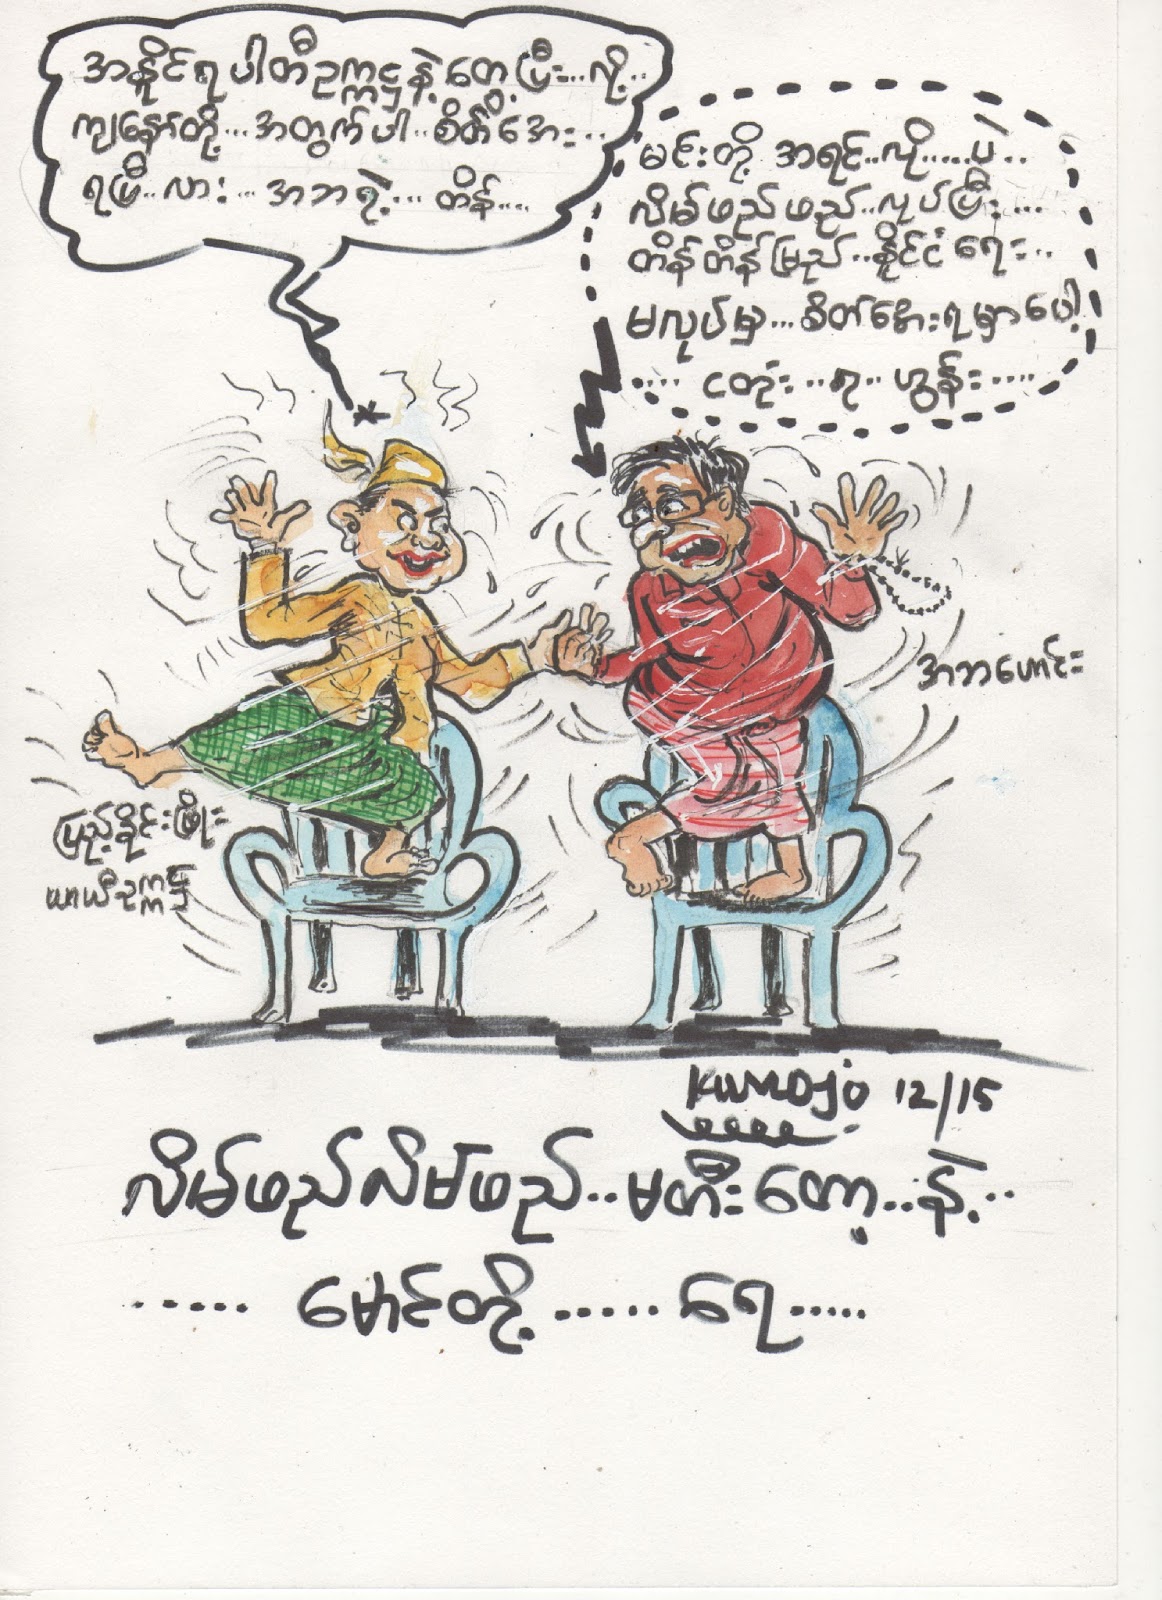 အနိူင်ရ ပါတီဥက္ကဋ္ဌနဲ့ တေ့ွပြီး..လို့..
ကျနော်တို့...အတွက်ပါ..စိတ်အေး..
ရပြီ..လား...အဘရဲ့...တိန်....
မင်းတို့ အရင်..လို.....ပဲ..
လိမ်ဖည်ဖည်..လုပ်ပြီး....
တိန်တိန်မြည်..နိူင်ငံရေး..
မလုပ်မှ...စိတ်အေးရမှာပေါ့
.... ငတုံး...ရ.. ဟွန်း....
အဘဟောင်း
ပြည်ခိုင်ဖြိုး
ယာယီဥက္ကဋ္ဌ
KUMOJO 12/15
လိမ်ဖည်လိမ်ဖည်..မတီးတော့..နဲ့..
..... မောင်တို့ ..... ရေ.....